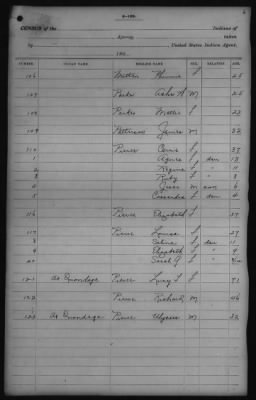 5-128.
CENSUS of the Indians of
Agency, taken
by United States Indian Agent,
189
NUMBER. INDIAN NAME. ENGLISH NAME. SEX. RELATION. AGE.
106 Minnie F 25
107 Parker M 25
108 Parker F 23
109 Patterson James M 33
110 Pierce F 37
1 Agnes F dau 13
2 F " 11
3 Ruby F " 8
4 Jesse M son 6
5 Cassandra F dau 4
116 Pierce Elizabeth F 57
117 Pierce Louisa F 27
8 Selina F dau 11
9 Elizabeth F " 4
20 Sarah J F "
121 An Onondaga Pierce Lucy F 71
122 Pierce Richard M 46
123 An Onondaga Pierce Ulysses M 22